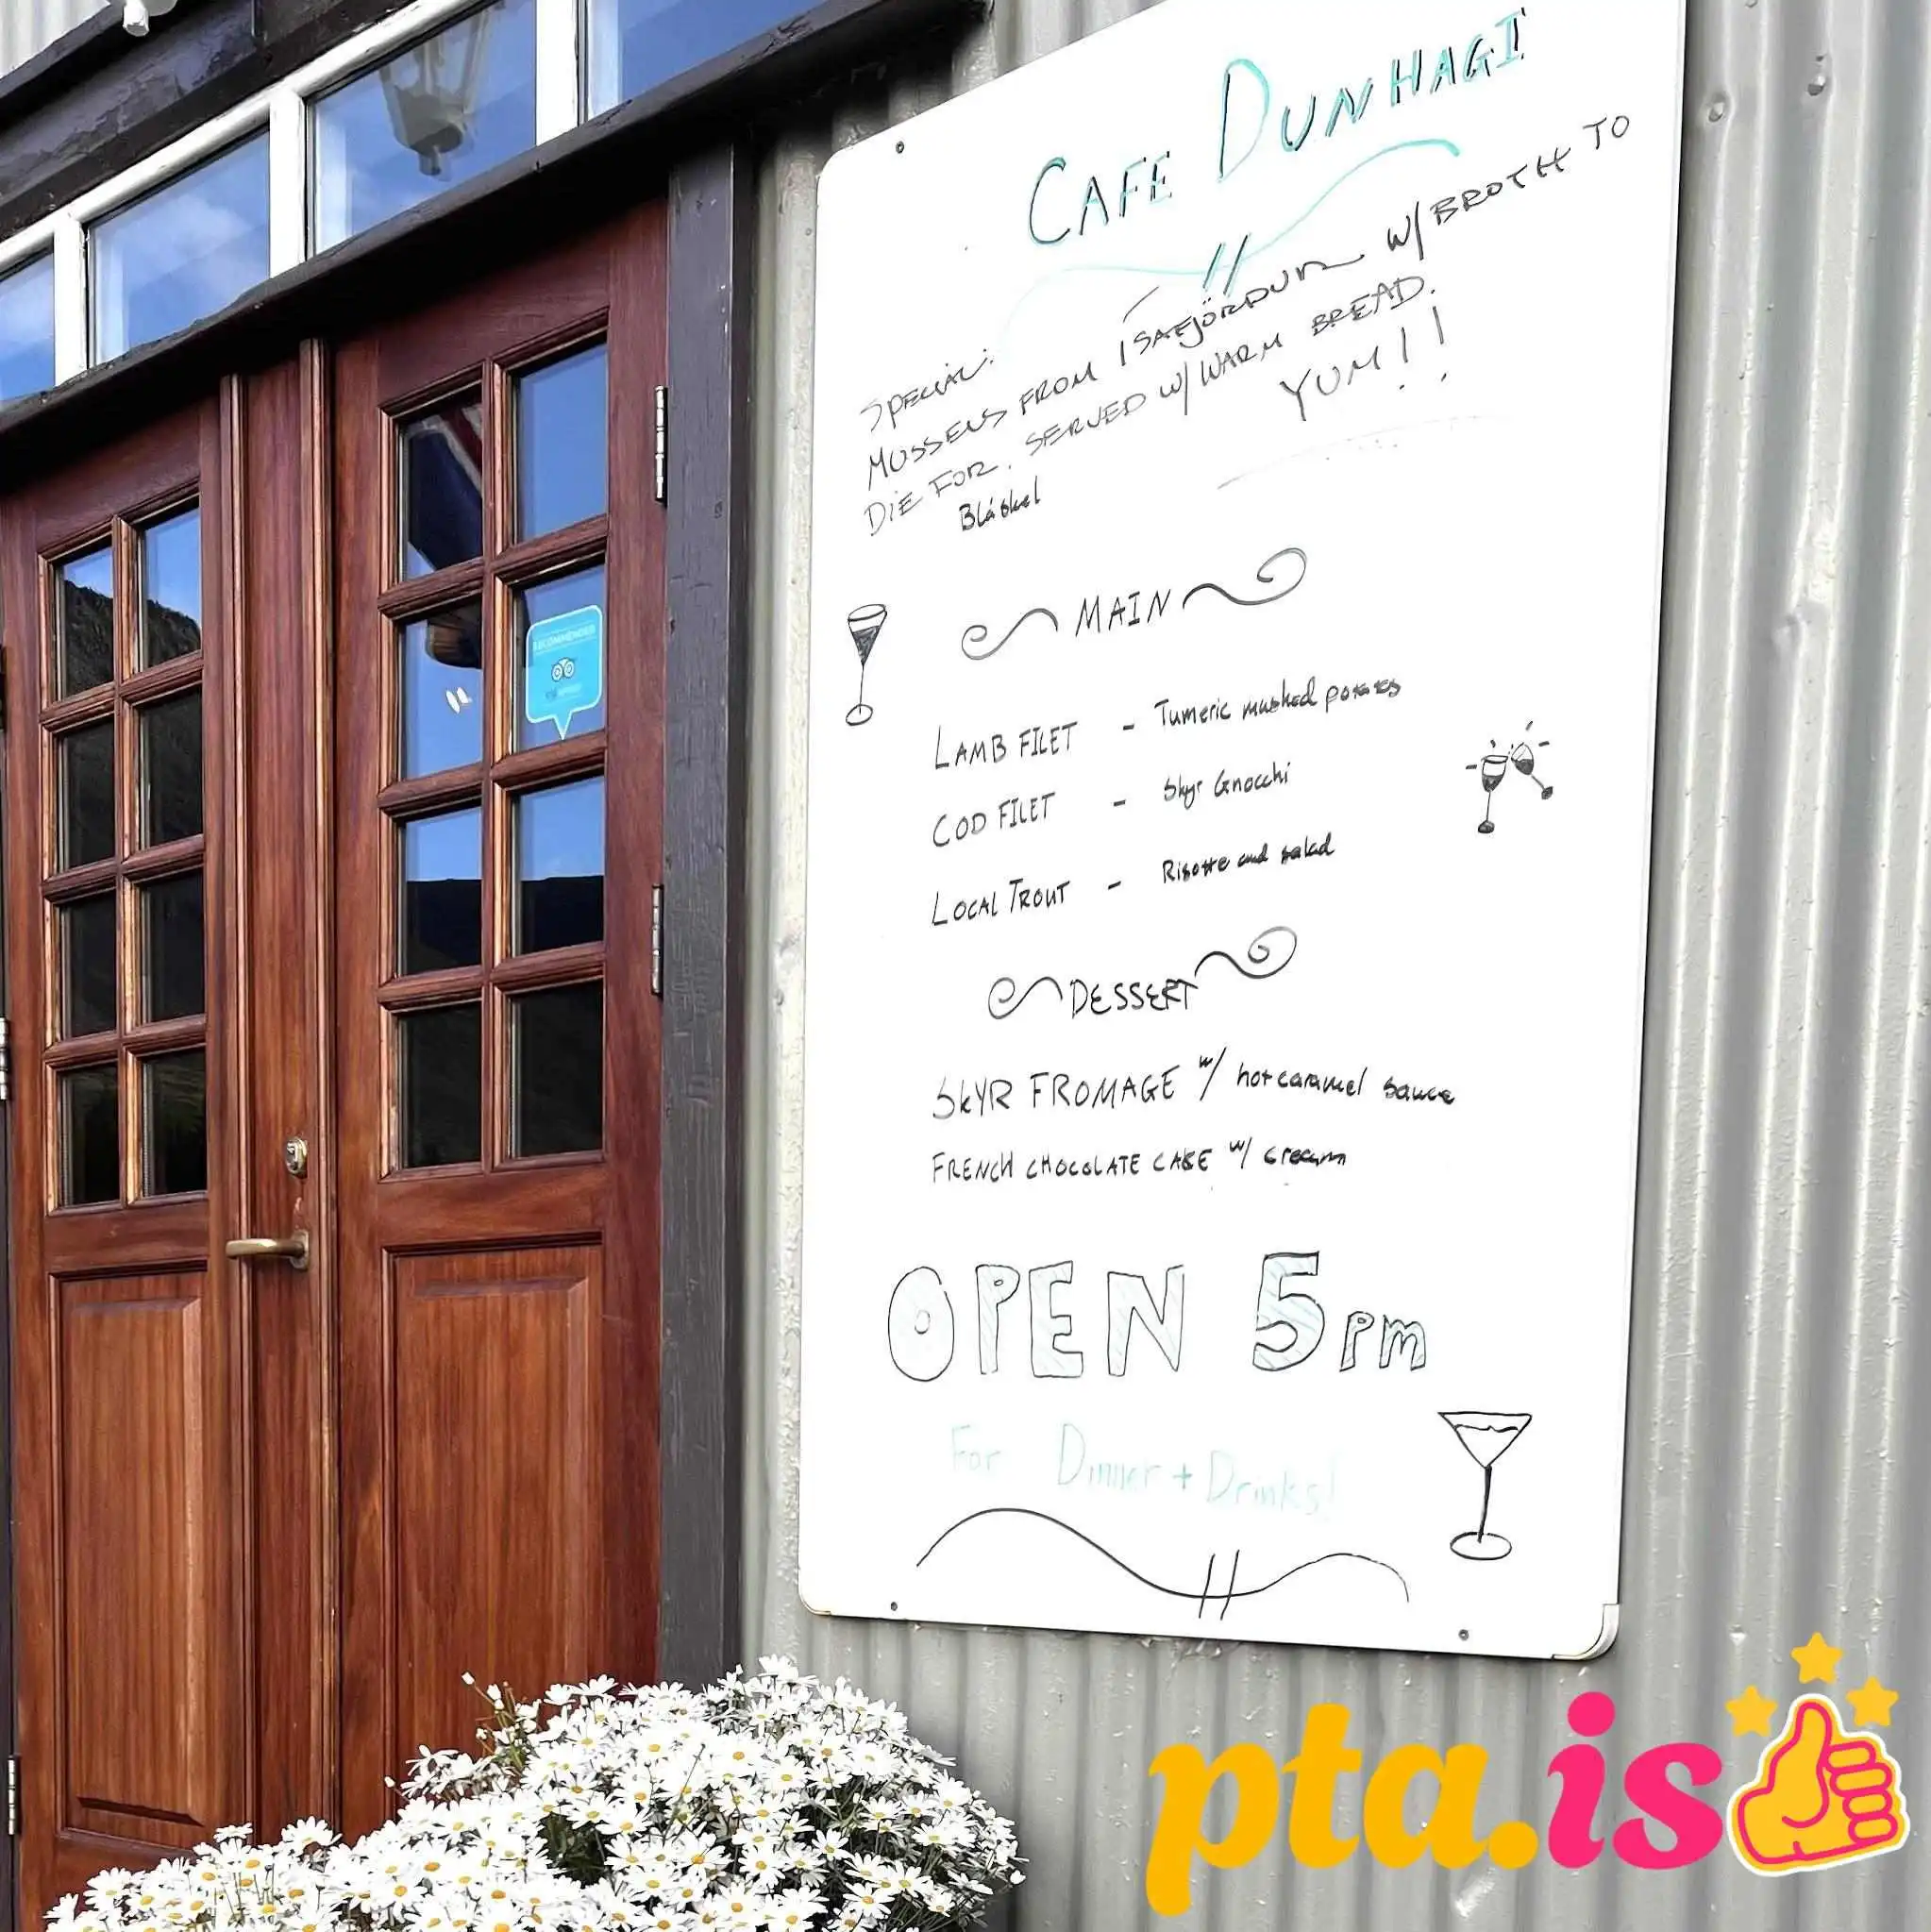 CAFE DUNHAGI
SPECIAL:
MUSSELS FROM ÍSAFJÖRÐUR W/ BROTH TO
DIE FOR. SERVED W/ WARM BREAD.
YUM!!
Bláskel
MAIN
LAMB FILET - Tumeric mashed potatos
COD FILET - Skyr Gnocchi
LOCAL TROUT - Risotto and salad
DESSERT
SKYR FROMAGE w/ hot caramel sauce
FRENCH CHOCOLATE CAKE w/ cream
OPEN 5 PM
For Dinner + Drinks!
RECOMMENDED
pta.is